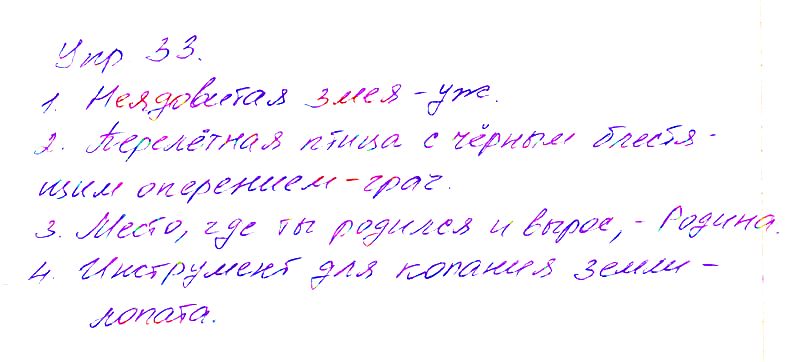 Упр 33.
1. Неядовитая змея - уж.
2. Перелётная птица с чёрным блестя-
щим оперением - грач.
3. Место, где ты родился и вырос, - Родина.
4. Инструмент для копания земли -
лопата.